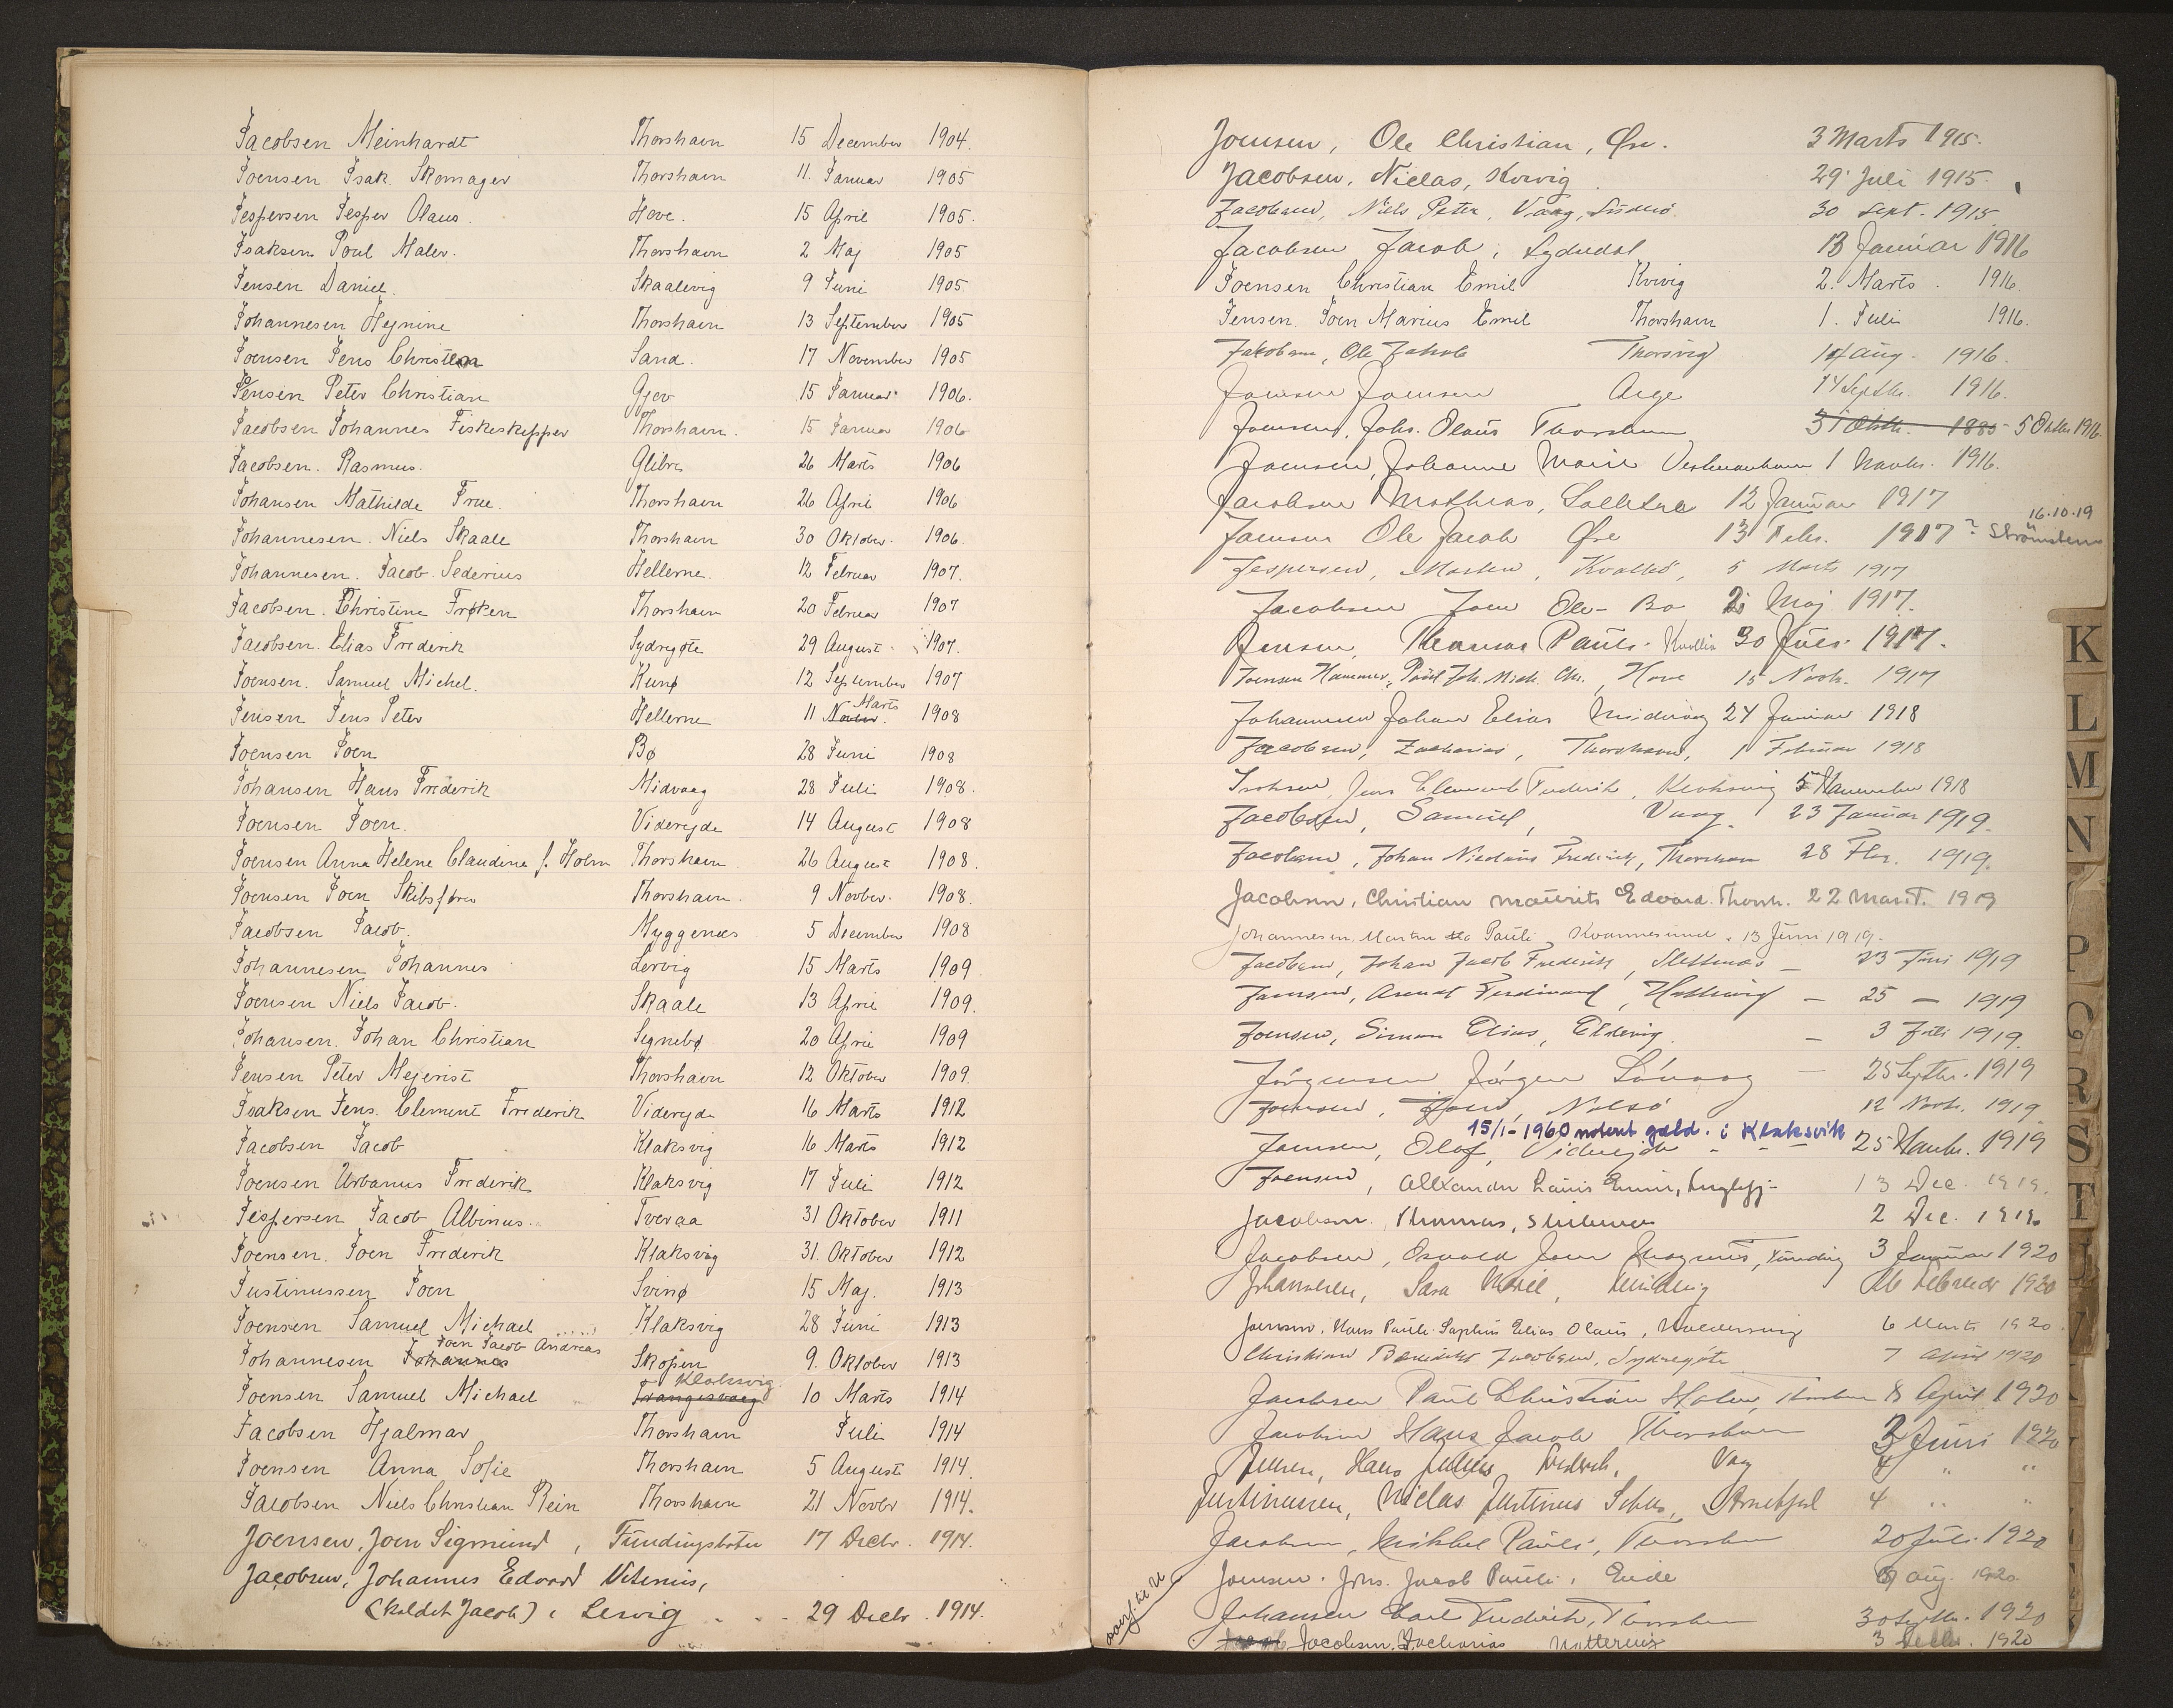 Jacobsen Meinhardt Thorshavn 15 December 1904.
Joensen Isak. Skomager Thorshavn 11. Januar 1905
Jespersen Jesper Olaus. Hove. 15 April 1905.
Isaksen Poul Maler. Thorshavn 2 Maj 1905
Jensen Daniel. Skaalevig 9 Juni 1905
Johannesen Hejnine Thorshavn 13 September 1905
Joensen Jens Christian Sand. 17 November 1905
Jensen Peter Christian Gjov 15 Januar 1906.
Jacobsen Johannes Fiskeskipper Thorshavn. 15 Januar 1906
Jacobsen. Rasmus. Glibre 26 Marts 1906
Johansen Mathilde Frue. Thorshavn 26 April 1906
Johannesen. Niels Skaale Thorshavn 30 Oktober. 1906.
Johannesen. Jacob Sederius Hellerne. 12 Februar 1907.
Jacobsen. Christine Frøken Thorshavn 20 Februar 1907
Jacobsen. Elias Frederik Sydregøte 29 August 1907.
Joensen. Samuel Michel. Kunø 12 September 1907
Jensen Jens Peter Hellerne 11 Novbr. Marts 1908
Joensen Joen Bø 28 Juni 1908
Johansen Hans Frederik Midvaag 28 Juli 1908.
Joensen Joen. Viderejde 14 August 1908
Joensen Anna Helene Claudine f. Holm Thorshavn. 26 August 1908.
Joensen Joen Skibsfører Thorshavn. 9 Novber. 1908.
Jacobsen Jacob. Myggenæs 5 December 1908
Johannesen Johannes Lervig 15 Marts 1909
Joensen Niels Jacob. Skaale 13 April 1909.
Johansen. Johan Christian Signebø 20 April 1909
Jensen Peter Mejerist Thorshavn 12 Oktober 1909.
Isaksen Jens. Clement Frederik Viderejde 16 Marts 1912
Jacobsen Jacob Klaksvig 16 Marts 1912
Joensen Urbanus Frederik Klaksvig 17 Juli 1912
Jespersen Jacob Albinus. Tveraa 31 Oktober 1911
Joensen. Joen Frederik Klaksvig 31. Oktober 1912
Justinussen Joen Svinø 15 Maj. 1913
Joensen Samuel Michael Klaksvig 28 Juni 1913
Joen Jacob Andreas
Johannesen Johannes Skopen 9. Oktober 1913
Klaksvig
Joensen Samuel Michael Trangisvaag 10 Marts 1914
Jacobsen Hjalmar Thorshavn Juli 1914
Joensen Anna Sofie Thorshavn 5 August 1914.
Jacobsen Niels Christian Rein Thorshavn 21 Novbr 1914.
Joensen, Joen Sigmund, Fundingsbotn 17 Decbr. 1914.
Jacobsen, Johannes Edvard Vitenius,
(kaldet Jacob) i Lervig - - - 29 Decbr. 1914.
Joensen, Ole Christian, Øre. 3 Marts 1915.
Jacobsen, Niclas, Kvivig 29 Juli 1915.
Jacobsen, Niels Peter, Vaag, Suderø 30 Sept. 1915
Jacobsen Jacob, Sydredal 13 Januar 1916
Joensen Christian Emil Kvivig 2. Marts 1916.
Jensen Joen Marius Emil Thorshavn 1. Juli 1916.
Jakobsen, Ole Jakob Thorsvig Aug. 1916.
Joensen Joensen Arge 14 Septbr. 1916.
Joensen, Johs. Olaus Thorshavn 31 Oktbr. 1885 5 Oktbr 1916.
Joensen, Johanne Marie Vestmanhavn 1 Novbr. 1916.
Jacobsen Mathias, Selletræ 12 Januar 1917
16.10.19
Joensen Ole Jacob Øre 13 Febr. 1917 ? Strømstem
Jespersen, Morten, Kvalbø, 5 Marts 1917
Jacobsen Joen Ole - Bø 2 Maj 1917.
Jensen, Thomas Pauli. 30 Juli 1917.
Joensen Hammer, Poul Joh. Mich. Chr., Hove 15 Novb. 1917
Johannesen Johan Elias Midvaag 24 Januar 1918
Jacobsen, Zacharias, Thorshavn, 1 Februar 1918
Isaksen, Jens Clement Frederik, Klaksvig 5 November 1918
Jacobsen, Samuel, Vaag. 23 Januar 1919.
Jacobsen, Johan Nicolaus Frederik, Thorshavn 28 Fbr. 1919.
Jacobsen, Christian Mauritz Edvard. Thorsh. 22 Marts. 1919
Johannesen, Martin Pauli Kvannesund. 13 Juni 1919.
Jacobsen, Johan Jacob Frederik, Slettenæs - 23 Juni 1919
Joensen, Arendt Ferdinand, Hattervig - 25 - 1919
Joensen, Simon Elias, Eldevig. - 3 Juli 1919.
Jörgensen Jörgen Sörvaag - 25 Septbr. 1919
Joensen, Joen, Nolsö 12 Novb. 1919
15/1-1960 noteret gæld. i Klaksvik
Joensen, Olaf, Viderejde 25 Novbr. 1919
Joensen, Allxander Lauis Emin, Fuglefj- 13 Dec. 1919.
Jacobsen. Thomas, 2 Dec. 1919.
Jacobsen, Osvald Joen Magnus, Funding 3 Januar 1920
Johannesen, Sara Marie, 26 Februar 1920
Joensen, Hans Pauli Sophus Elias Olaus, 6 Marts 1920.
Christian Benedikt Jacobsen, Sydregøte 7 April 1920
Jacobsen Paul Christian Holm, Thorshavn 8 April 1920
Jacobsen Hans Jacob Thorshavn 3 Juni 1920
Jensen, Hans Julius Frederik, Vaag 4 " "
Justinussen, Niclas Justinus Arnefjord 4 " "
Jacobsen, Mikkel Pauli, Thorshavn 20 Juli 1920
overf. til U
Joensen. Johs. Jacob Pauli. Eide Aug. 1920.
Johansen Carl Frederik, Thorshavn 30 Septbr. 1920
Jacobsen, Zacharias Hattervig 3 Decbr. 1920
K
L
M
N
P
Q
R
S
T
U
V